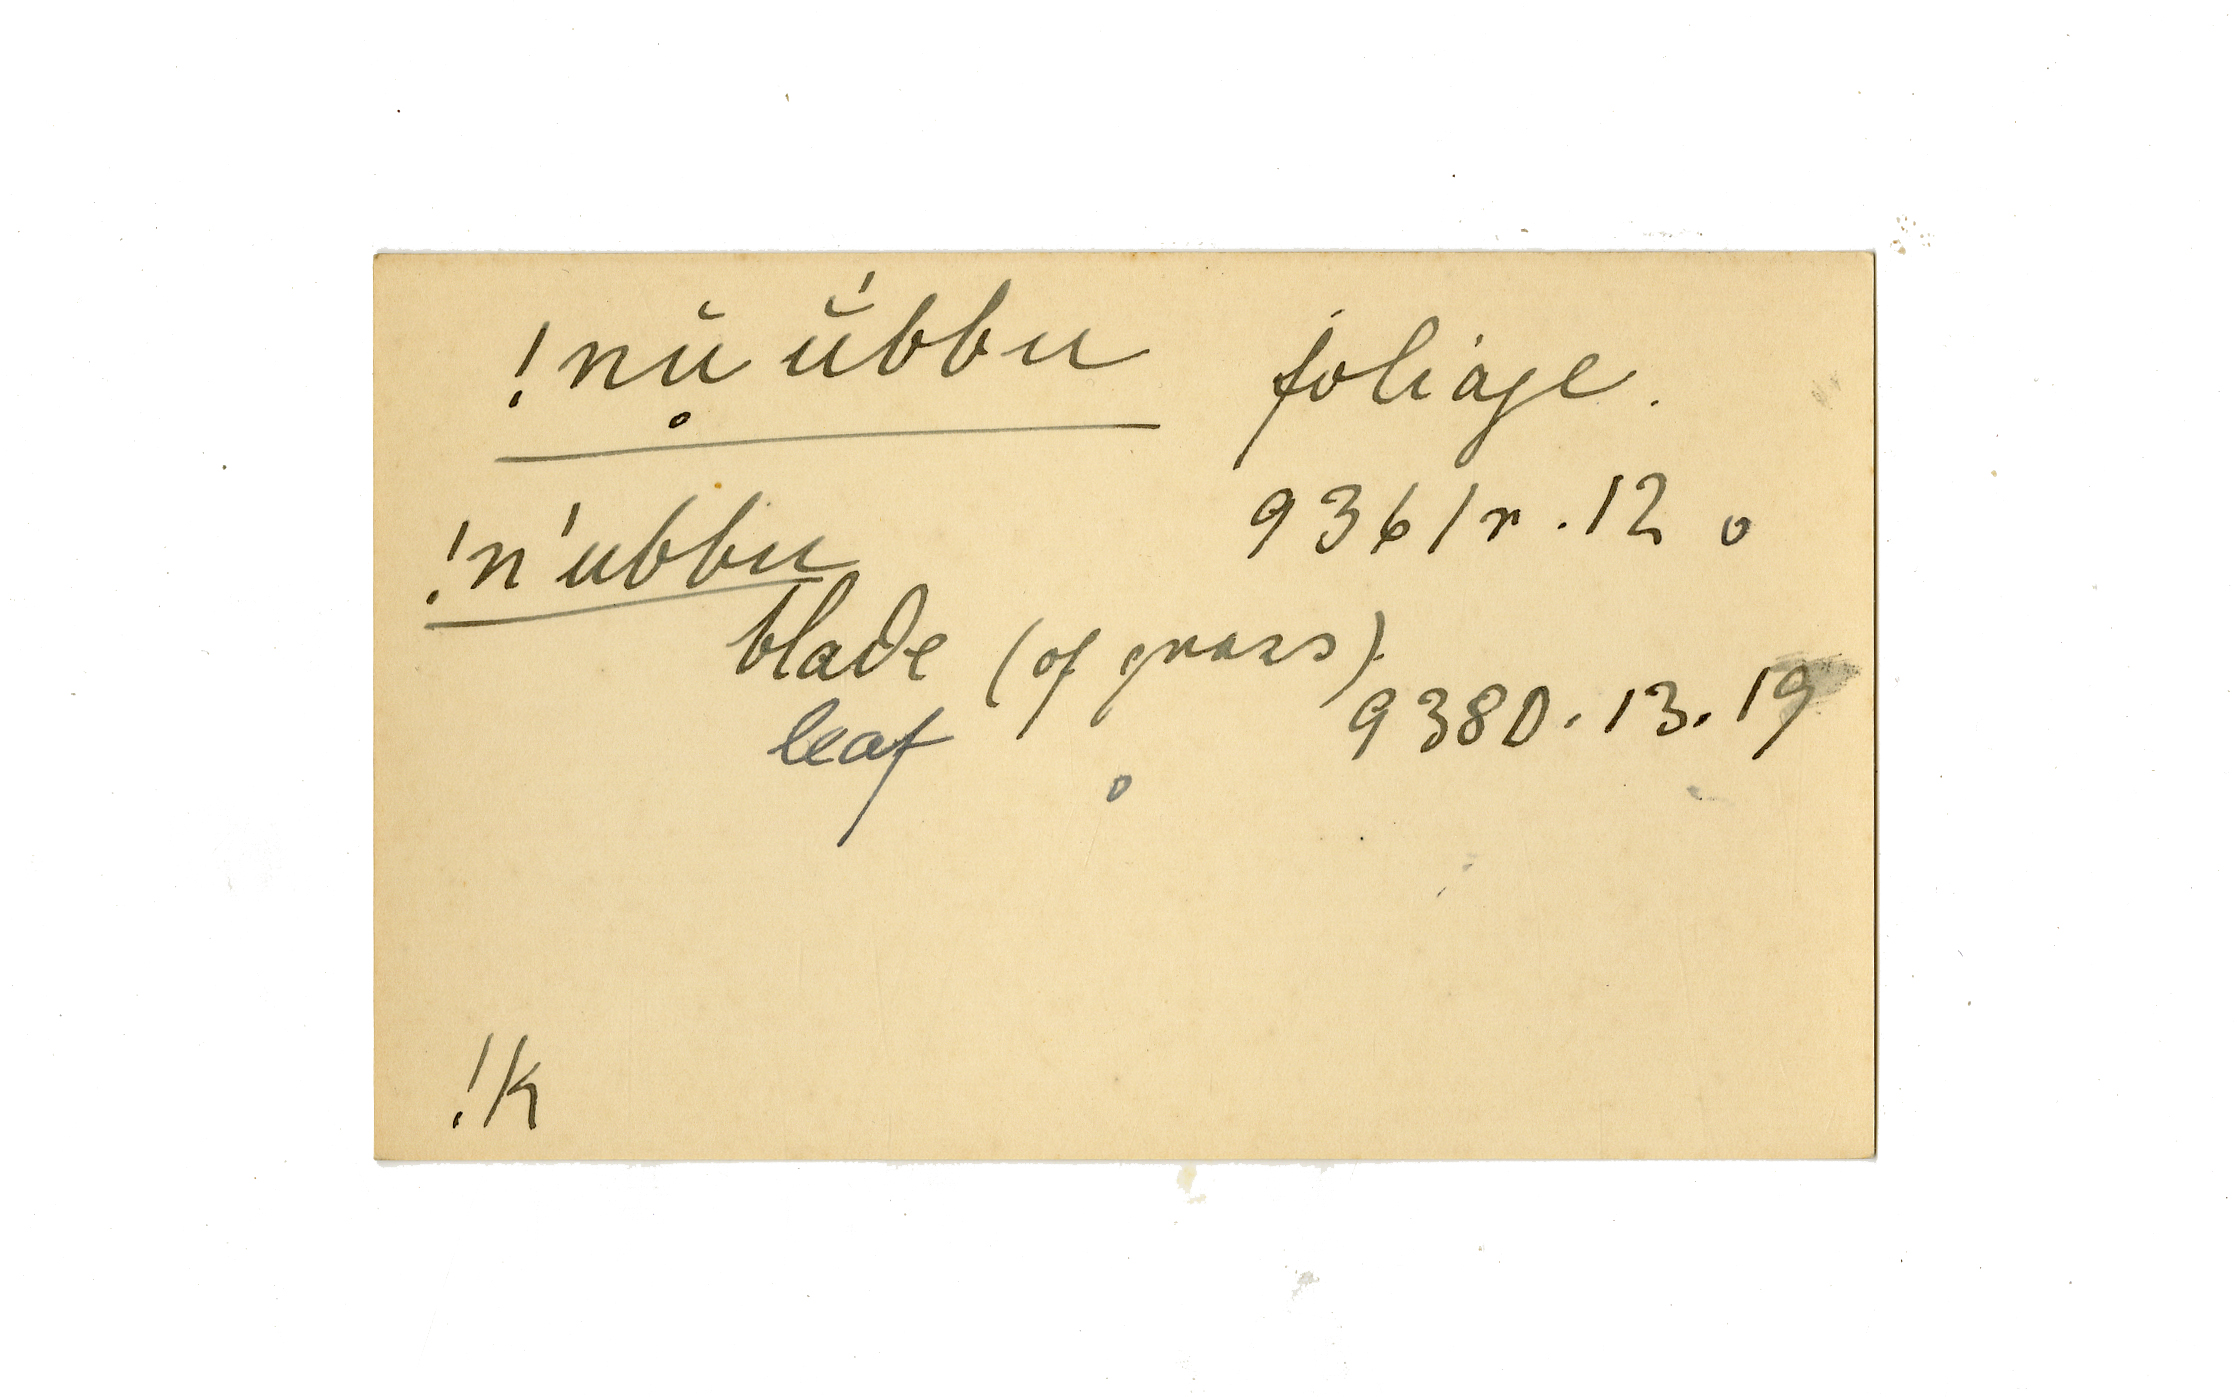 !nŭ̥ ŭ́bbu foliage.
9361r.12 o
!n'ubbu
blade (of grass)
9380.13.19
leaf o
!k